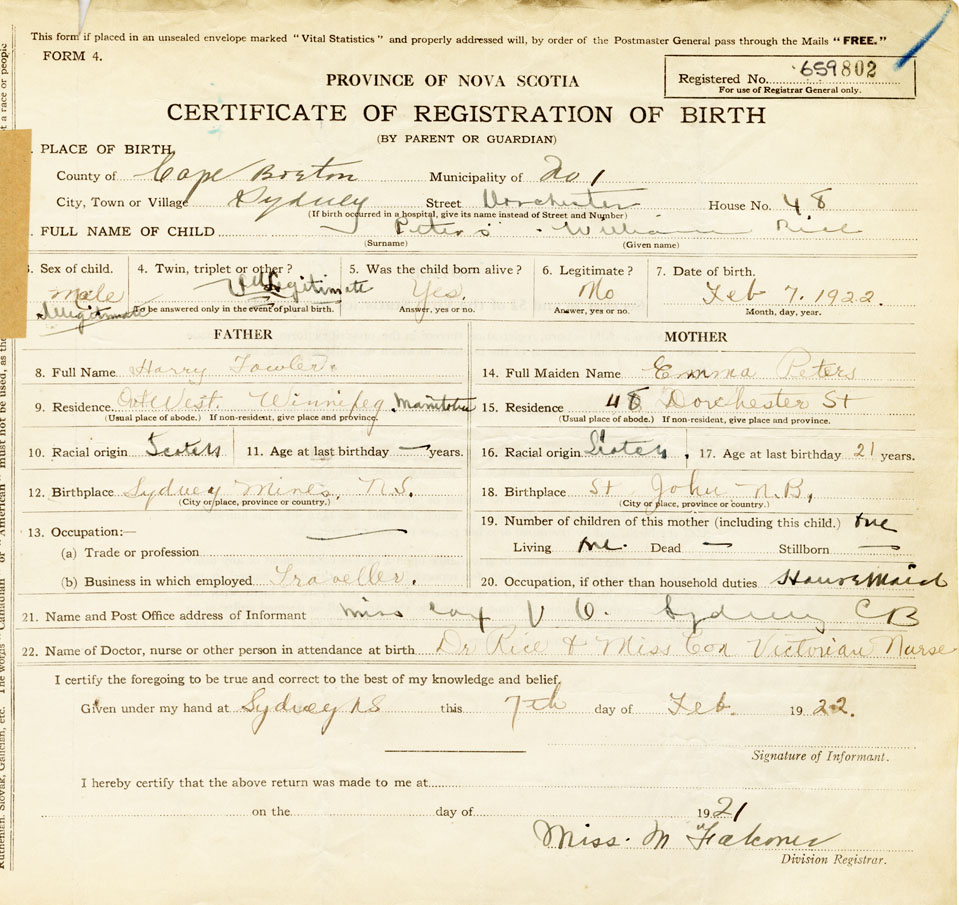 This form if placed in an unsealed envelope marked "Vital Statistics" and properly addressed will, by order of the Postmaster General pass through the Mails "FREE."
FORM 4.
PROVINCE OF NOVA SCOTIA
Registered No. 659802
For use of Registrar General only.
CERTIFICATE OF REGISTRATION OF BIRTH
(BY PARENT OR GUARDIAN)
PLACE OF BIRTH,
County of Cape Breton Municipality of No 1
City, Town or Village Sydney Street Dorchester House No. 48
(If birth occurred in a hospital, give its name instead of Street and Number)
FULL NAME OF CHILD Peters William Rice
(Surname) (Given name)
3. Sex of child. 4. Twin, triplet or other? 5. Was the child born alive? 6. Legitimate? 7. Date of birth.
Male Illegitimate Yes. No Feb 7. 1922.
Illegitimate To be answered only in the event of plural birth. Answer, yes or no. Answer, yes or no. Month, day, year.
FATHER MOTHER
8. Full Name Harry Fowler. 14. Full Maiden Name Emma Peters
9. Residence Out West Winnipeg, Manitoba 15. Residence 48 Dorchester St
(Usual place of abode.) If non-resident, give place and province. (Usual place of abode.) If non-resident, give place and province.
10. Racial origin Scotch 11. Age at last birthday — years. 16. Racial origin Scotch, 17. Age at last birthday 21 years.
12. Birthplace Sydney Mines, N.S. 18. Birthplace St John N.B,
(City or place, province or country.) (City or place, province or country.)
13. Occupation:— 19. Number of children of this mother (including this child.) One
(a) Trade or profession Living One. Dead — Stillborn —
(b) Business in which employed Traveller. 20. Occupation, if other than household duties House Maid
21. Name and Post Office address of Informant Miss Cox V O. Sydney CB
22. Name of Doctor, nurse or other person in attendance at birth Dr Rice & Miss Cox Victorian Nurse
I certify the foregoing to be true and correct to the best of my knowledge and belief.
Given under my hand at Sydney NS this 7th day of Feb. 1922.
Signature of Informant.
I hereby certify that the above return was made to me at
on the day of 1921
Miss. M Falconer
Division Registrar.